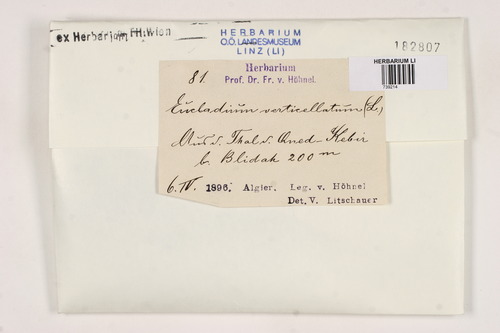 ex Herbarium FH.Wien
HERBARIUM
O.Ö. LANDESMUSEUM
LINZ (LI)
182807
HERBARIUM LI
739214
81.
Herbarium
Prof. Dr. Fr. v. Höhnel.
Eucladium verticellatum (L.)
Thal v. Oued-Kebir
b. Blidah 200 m
6. IV. 1896. Algier. Leg. v. Höhnel
Det. V. Litschauer